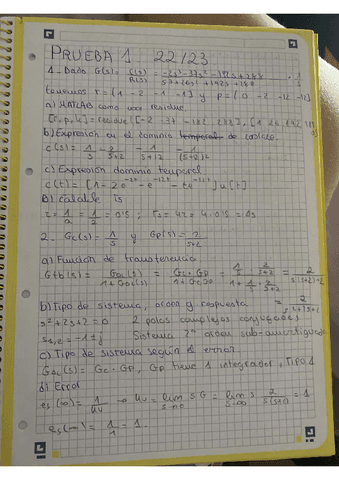 PRUEBA 1 22/23
1. Dado G(s) = C(s)/R(s) = -2s³-37s²-192s+288 / s³+26s²+192s+288 · 1/s
tenemos r = [1 -2 -1 -1] y p = [0 -2 -12 -12]
a) MATLAB como usar residue
[r,p,k] = residue([-2 -37 -192 288], [1 26 192 288 0])
b) Expresión en el dominio de Laplace.
C(s) = 1/s - 2/(s+2) - 1/(s+12) - 1/(s+12)²
c) Expresión dominio temporal
c(t) = [1 - 2e^-2t - e^-12t - te^-12t] u(t)
D) Calcule ts
τ = 1/a = 1/2 = 0'5 ; ts = 4τ = 4·0'5 =
2. Gc(s) = 1/s y Gp(s) = 2/(s+2)
a) Funcion de transferencia
Gtb(s) = Gol(s)/(1+Gol(s)) = Gc·Gp/(1+Gc·Gp) = (1/s · 2/(s+2))/(1+1/s · 2/(s+2)) =
b) Tipo de sistema, orden y respuesta
s²+2s+2 = 0 2 polos complejos conjugados
s1,2 = -1±j Sistema 2º orden sub-amortiguado
c) Tipo de sistema según el error
Gol(s) = Gc·Gp, Gp tiene 1 integrador, Tipo 1
d) Error
es(∞) = 1/Kv → Kv = lim s→0 s G = lim s→0 s 2/(s(s+2)) = 1
es(∞) = 1/1 = 1.